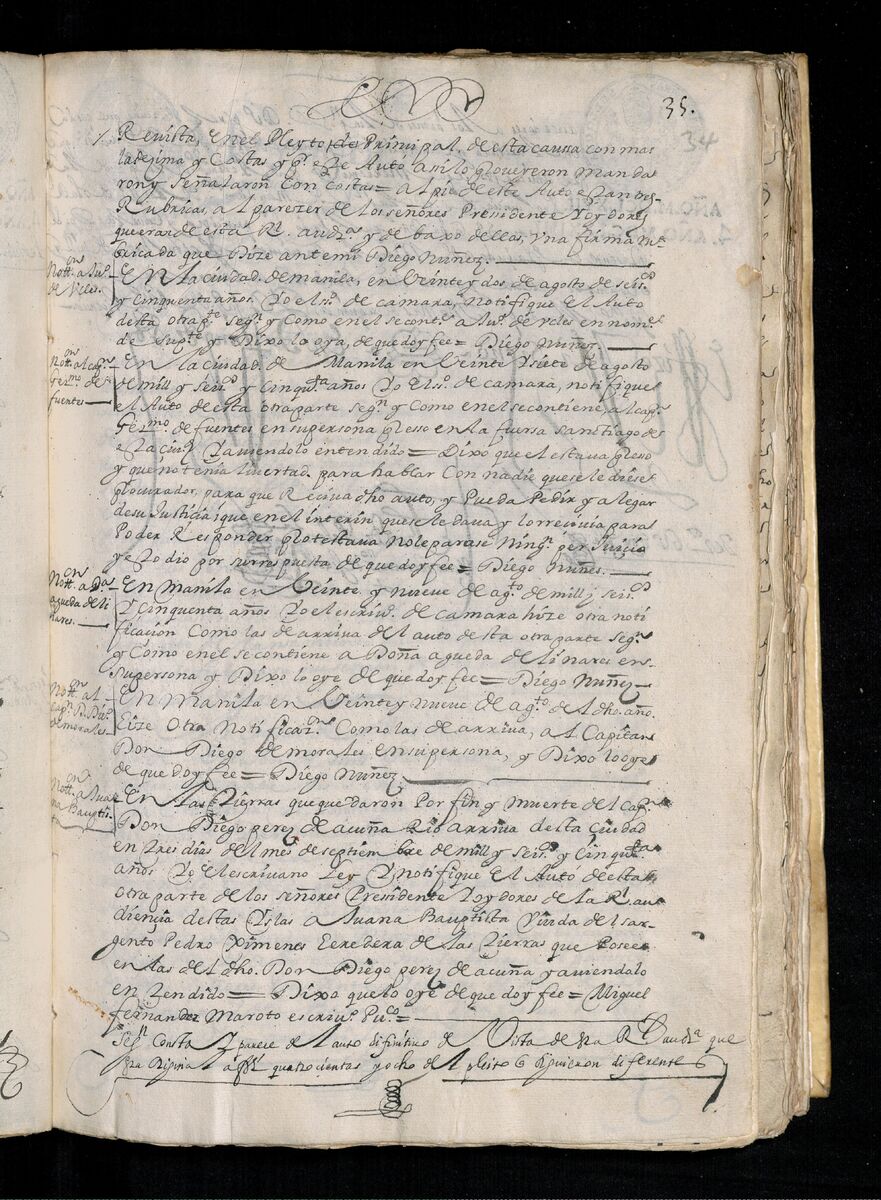 35.
34
Revista, en el Pleyto de Principal, de esta caussa con mas
la dezima y Costas y pr. este Auto asi lo proveyeron manda
ron y señalaron Con Costas = al pie de este Auto estan tres
Rubricas, al parezer de los señores Presidente Yoydores
que eran de esta Rl. audza. y de baxo dellas, Una firma Ru
bricada que Dize ante mi Diego Nuñez.
Nottn. a Ju.
de Veles.
En la ciudad de manila, en Veinte y dos de agosto de seisos
y cinquenta años. Yo el ss. de camara, notifique El Auto
desta otra pte. segn. y Como en el se contne. a Ju. de veles en nome.
de su pte. y Dixo lo oya, de que doy fee = Diego Nuñez.
Nottn. al capn.
Germo. de
fuentes
En la ciudad de Manila en Veinte Ysiete de agosto
de mill y seisos y cinquta. años Yo El ss. de camara, notifique
el Auto de esta otra parte segn. y Como en el se contiene, al capn.
Germo. de fuentes en su persona preso en la fuersa Santiago de
esta ciud. Y aviendolo entendido = Dixo que el estava preso
y que no tenia livertad, para hablar Con nadie que se le diese
procurador, para que Reciva dho auto, y Pueda Pedir y alegar
de su Justicia; que en el interin que se le dava y lo recivia para
Poder Responder protestava No le parase Ningn. perjuicio
y esto dio por su rrespuesta de que doy fee = Diego Nuñes.
Nottn. a Da.
agueda de li
nares.
En Manila en Veinte y nueve de agto. de mill y seisos
Y cinquenta años Yo el escriv. de camara hize otra noti
ficacion Como las de arriva del auto desta otra parte segn.
y Como en el se contiene a Doña agueda de linares en
su persona y Dixo lo oye de que doy fee = Diego Nuñez
Nottn. al
capn. D. Do.
de morales
En Manila en Veinte y nueve de agto. del dho. año.
Hize otra Notificazn. Como las de arriva, al Capitan
Don Diego de morales en su persona, y Dixo lo oye
de que doy fee = Diego Nuñez
Nottn. a Jua
na Bauptis
ta
En las tierras que quedaron Por fin y muerte del capn.
Don Diego perez de acuña Rio arriva desta ciudad
en tres dias del mes de septiembre de mill y seisos y cinquta.
años Yo El escrivano Ley Y notifique El Auto de esta
otra parte de los señores Presidente Yoydores de la Rl. au
diençia destas Yslas a Juana Bauptista Viuda del sar
gento Pedro Ximenes Eeredera de las tierras que Posee
en las del dho. Don Diego perez de acuña y aviendolo
entendido = Dixo que lo oye de que doy fee = Miguel
fernandez Maroto escriv. Puco. =
Segn. Consta Y parece del auto difinitivo de Vista de esta Rl. audsa. que
esta original a fs. quatrocientas y ocho del pleito q siguieron diferente